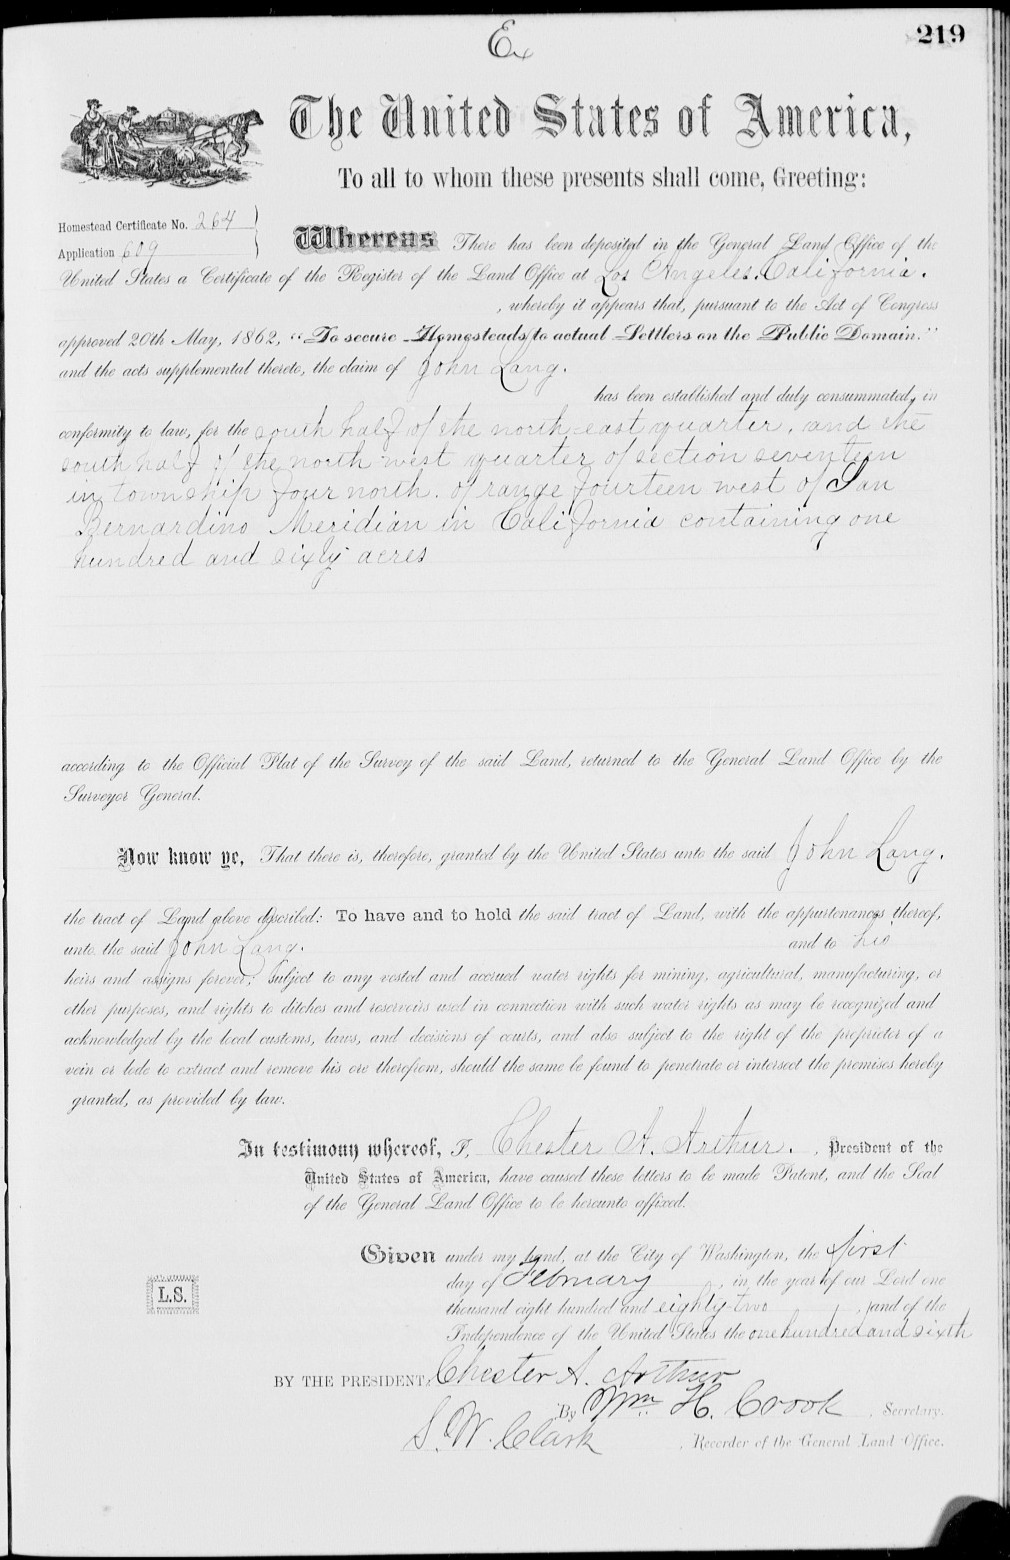 Ex
219
The United States of America,
To all to whom these presents shall come, Greeting:
Homestead Certificate No. 264
Application 609
Whereas There has been deposited in the General Land Office of the
United States a Certificate of the Register of the Land Office at Los Angeles. California.
, whereby it appears that, pursuant to the Act of Congress
approved 20th May, 1862, "To secure Homesteads to actual Settlers on the Public Domain."
and the acts supplemental thereto, the claim of John Lang.
has been established and duly consummated, in
conformity to law, for the south half of the north-east quarter, and the
south half of the north west quarter of section seventeen
in township four north. of range fourteen west of San
Bernardino Meridian in California containing one
hundred and sixty acres
according to the Official Plat of the Survey of the said Land, returned to the General Land Office by the
Surveyor General.
Now know ye, That there is, therefore, granted by the United States unto the said John Lang.
the tract of Land above described: To have and to hold the said tract of Land, with the appurtenances thereof,
unto the said John Lang. and to his
heirs and assigns forever; subject to any vested and accrued water rights for mining, agricultural, manufacturing, or
other purposes, and rights to ditches and reservoirs used in connection with such water rights as may be recognized and
acknowledged by the local customs, laws, and decisions of courts, and also subject to the right of the proprietor of a
vein or lode to extract and remove his ore therefrom, should the same be found to penetrate or intersect the premises hereby
granted, as provided by law.
In testimony whereof, I, Chester A. Arthur. , President of the
United States of America, have caused these letters to be made Patent, and the Seal
of the General Land Office to be hereunto affixed.
Given under my hand, at the City of Washington, the first
day of February , in the year of our Lord one
thousand eight hundred and eighty-two , and of the
Independence of the United States the one hundred and sixth
L.S.
BY THE PRESIDENT: Chester A. Arthur
By Wm. H. Crook , Secretary.
S. W. Clark , Recorder of the General Land Office.